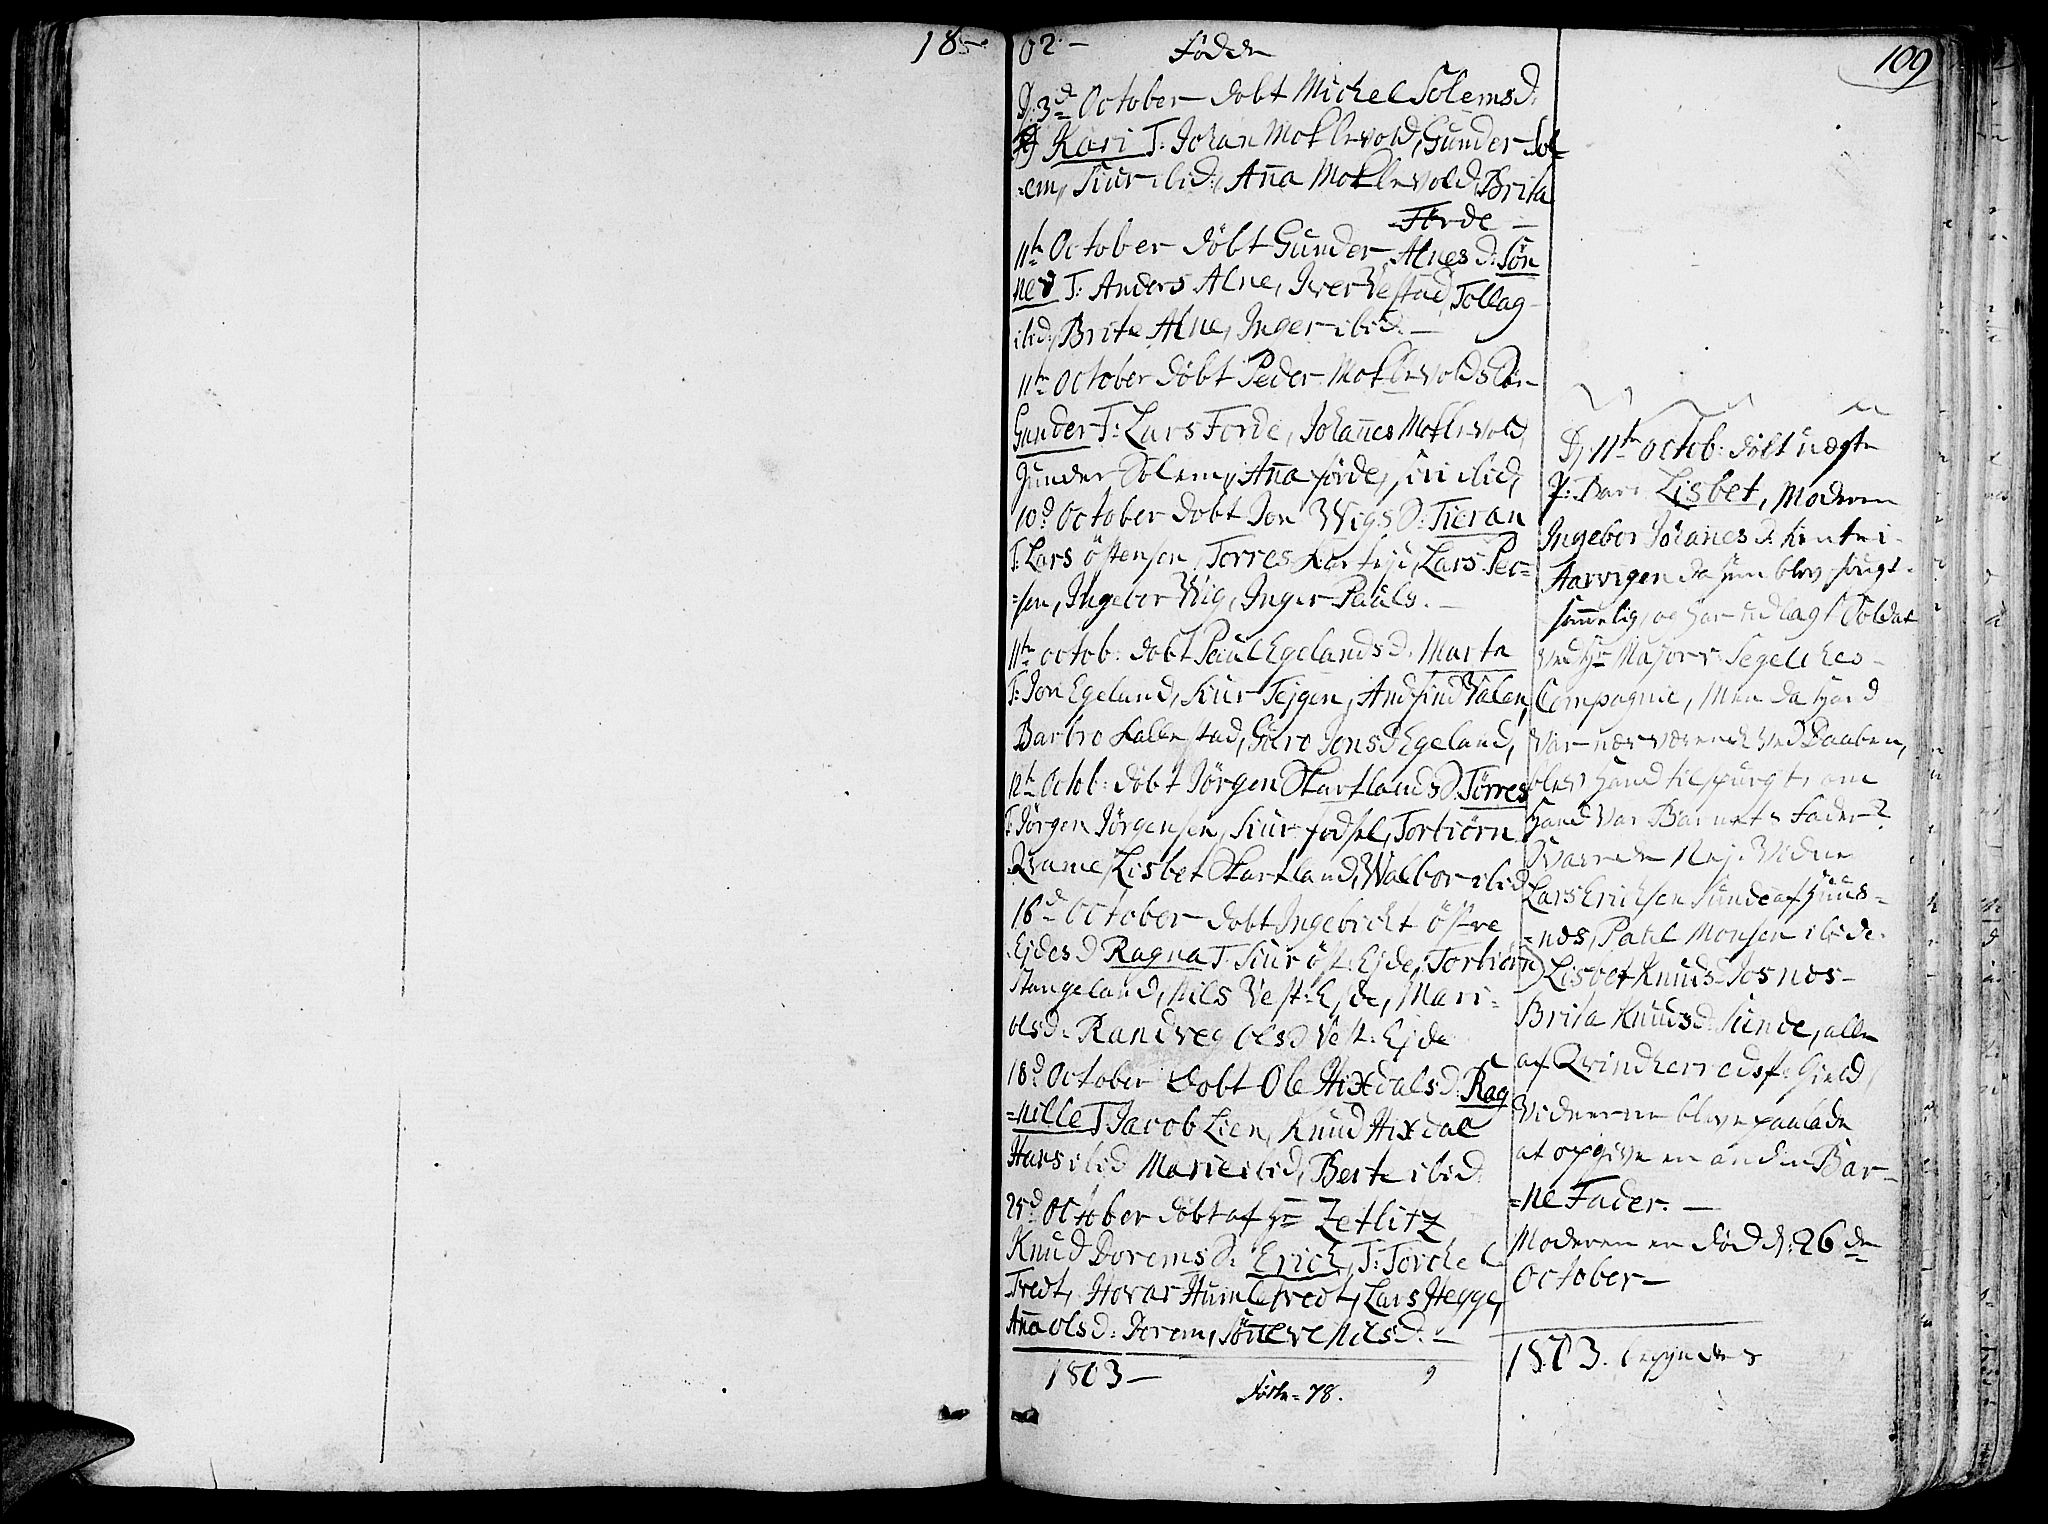 18-
02- Födde
109
D: 3d October döbt Michel Solems d:
Kari T: Johan Moklevold, Gunder Sol-
=em, Siur ibid:, Ana Moklevold, Brita
Förde —
11te October döbt Gunder Alnes d: Sön
nev T: Anders Alne, Iver Vestad, Tollag
ibid: Brite Alne, Inger ibid: —
11te October döbt Peder Moklevolds Sön
Gunder T: Lars Forde, Johannes Moklevold
Gunder Solem, Ana förde, Siri ibid,
10d October döbt Jon Wigs d: Tieran
T: Lars östensen, Torres, Lars Peer=
=sen, Ingebor Wig, Inger Paüls. —
11te octob: döbt Paul Egelands d: Marta
T: Jon Egeland, Siur Tejgen, Andfind Valen,
Barbro Hallestad, Guro Jonsd Egeland,
12te Octob: döbt Jörgen Skartlands S: Törres
T: Jörgen Jörgensen, Siur fodsel, Torbiörn
Qvame, Lisbet Skartland, Walbor ibid
16d October döbt Ingebricht östre
Ejdes d Ragna T: Siur öst: Ejde, Torbiörn
Stangeland, Nils Vest: Ejde, Mari
olsd: Randveg olsd Vest: Ejde
18d October döbt Ole Hixdals d: Rag
=nille T Jacob Lien, Knud Hixdal
Hans ibid Marie ibid, Berte ibid:
25d October döbt af Hr Zetlitz
Knud Dorems S: Erich, T: Torchel
Tvedt, Hovar Humletvedt, Lars Hegge,
Ana olsd: Dorem, Sönneve Nilsd: —
1803 — 9
Födte = 78.
D: 11te octob: döbt uægte
P: Barn Lisbet, Moderen
Ingebor Johanesd. kiente i
Aarvigen da hun blev svangr-
sommelig, og har udlagt Soldat
ved Hr Major Segelckes
Compagnie, Men da hand
var nærværende ved Daaben,
blev hand tilspurgt, om
hand var Barnets Fader?
Svarede Nej. Vidner
Lars Erichsen Sunde af Huus=
=nes, Paül Monsen ibide.
Lisbet Knuds Rosnes-
Brita Knudsd: Sunde, alle
af Qvindherreds Gield,
Vidnerne bleve paalagde
at opgive en anden Bar-
=ne Fader. —
Moderen er död d: 26de
October —
1803. begyndes